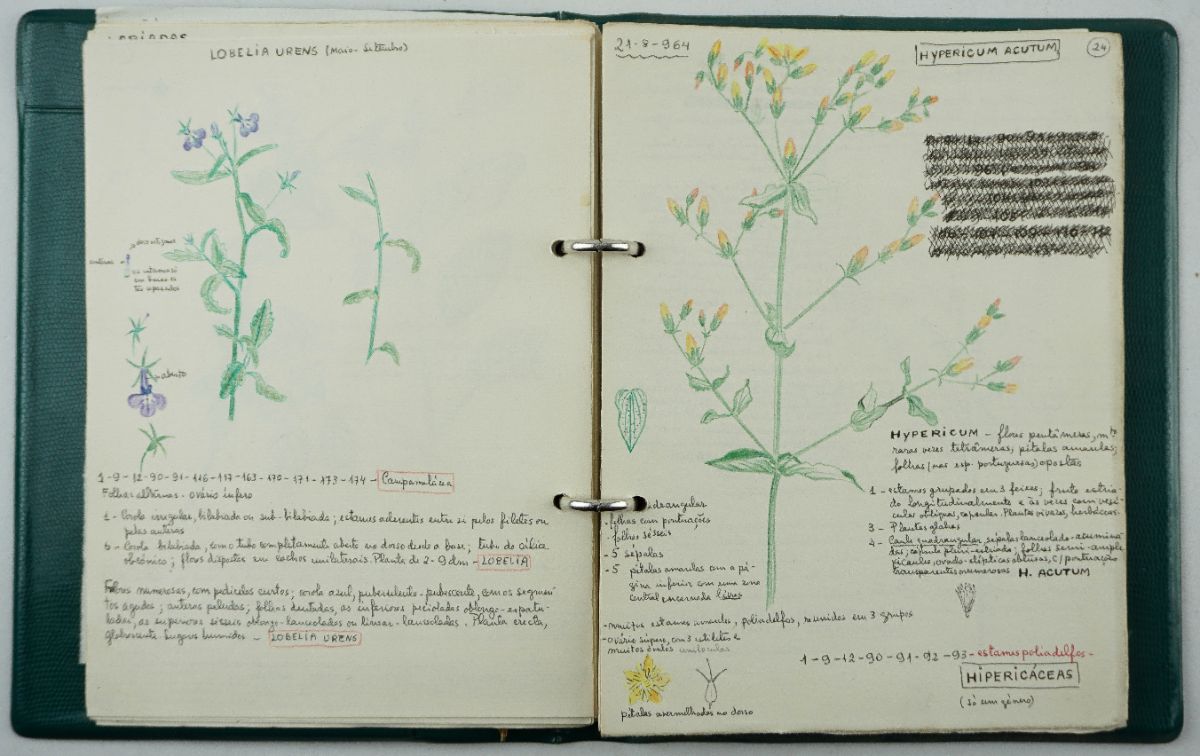 LOBELIA URENS (Maio-Setembro)
aberto
1-9-12-90-91-116-117-163-170-171-173-174- Campanulácea
Folhas alternas - ovário ínfero
1 - Corola irregular, bilabiada ou sub-bilabiada; estames aderentes entre si pelos filetes ou
pelas anteras
5 - Corola bilabiada, com o tubo completamente aberto no dorso desde a base; tubo do cálice
obcónico; flores dispostas em cachos unilaterais. Planta de 2-9 dm - LOBELIA
Flores numerosas, com pedicelos curtos; corola azul, puberulento-pubescente, com os segmen
tos agudos; anteras peludas; folhas dentadas, as inferiores pecioladas oblongo-espatu-
ladas, as superiores sésseis oblongo-lanceoladas ou linear-lanceoladas. Planta erecta,
glabrescente. Lugares húmidos - LOBELIA URENS
21-8-964
HYPERICUM ACUTUM
24
HYPERICUM - flores pentâmeras, mto
raras vezes tetrâmeras; pétalas amarelas;
folhas (nas esp. portuguesas) opostas
1 - estames grupados em 3 feixes; fruto estria-
do longitudinalmente e às vezes com vesí-
culas oblíquas, capsular. Plantas vivazes, herbáceas.
3 - Plantas glabras
4 - Caule quadrangular, sépalas lanceolado-acumina
das; cápsula pluri-estriada; folhas semi-ample
xicaules, ovado-elípticas obtusas, c/ pontuações
transparentes numerosas H. ACUTUM
quadrangular
- folhas com pontuações
- folhas sésseis
- 5 sépalas
- 5 pétalas amarelas com a pá-
gina inferior com uma zona
central encarnada livres
- muitos estames amarelos, poliadelfos, reunidos em 3 grupos
- ovário súpero, com 3 estiletes e
muitos óvulos
1-9-12-90-91-92-93- estames poliadelfos-
HIPERICÁCEAS
(só um género)
pétalas avermelhadas no dorso